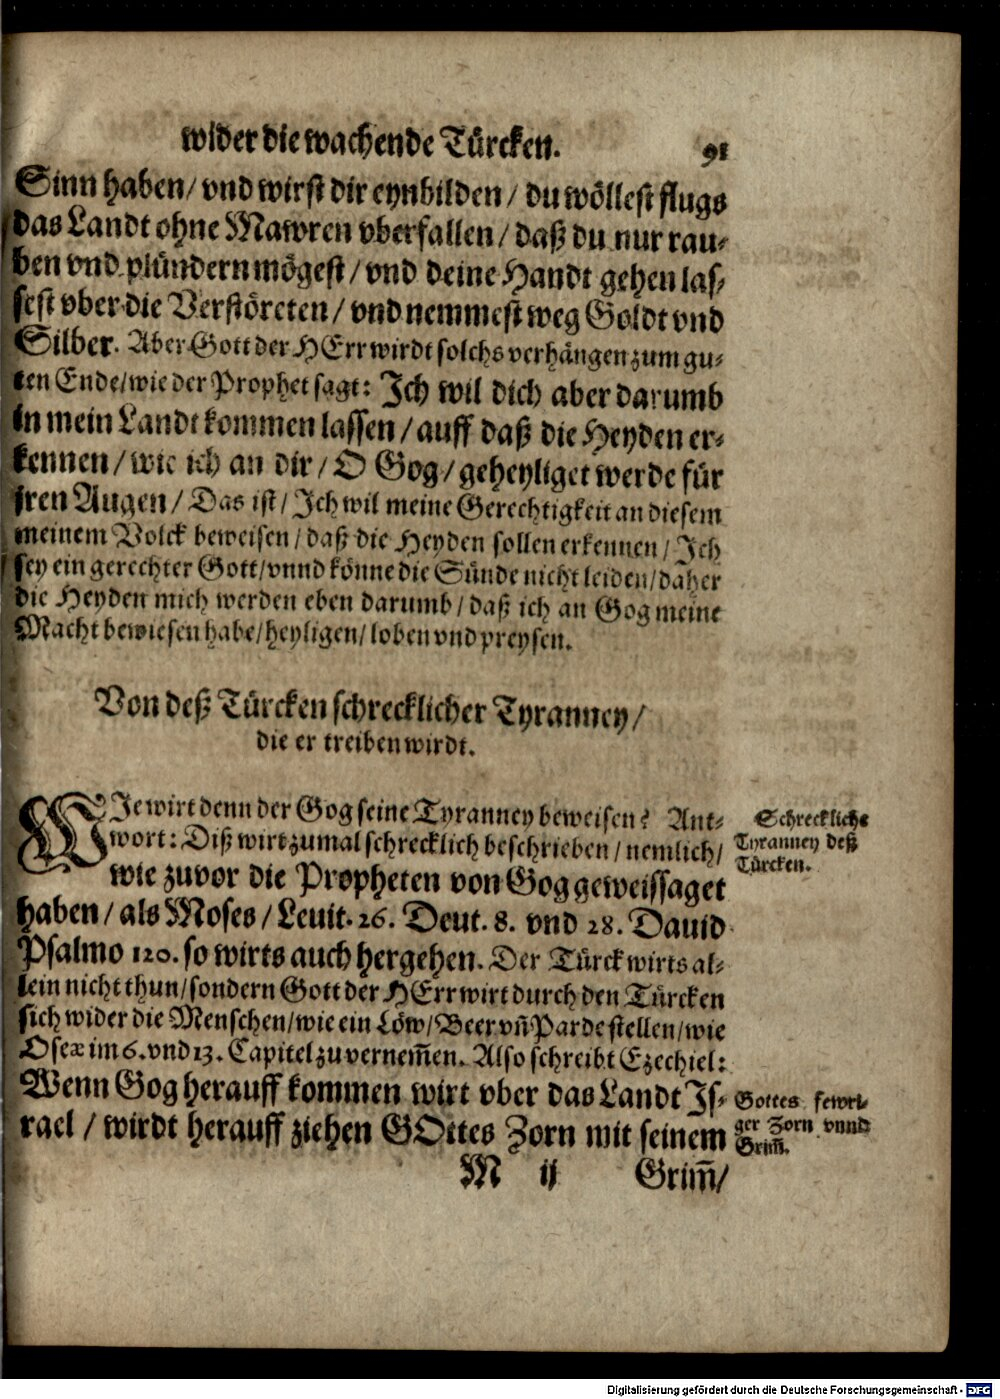 wider die wachende Türcken. 91
Sinn haben/ vnd wirst dir eynbilden/ du wöllest flugs
das Landt ohne Mawren vberfallen/ daß du nur rau-
ben vnd plündern mögest/ vnd deine Handt gehen las-
sest vber die Verstöreten/ vnd nemmest weg Goldt vnd
Silber. Aber Gott der HErr wirdt solchs verhängen zum gu-
ten Ende/ wie der Prophet sagt: Ich wil dich aber darumb
in mein Landt kommen lassen/ auff daß die Heyden er-
kennen/ wie ich an dir/ O Gog/ geheyliget werde für
jren Augen/ Das ist/ Ich wil meine Gerechtigkeit an diesem
meinem Volck beweisen/ daß die Heyden sollen erkennen/ Ich
sey ein gerechter Gott/ vnnd könne die Sünde nicht leiden/ daher
die Heyden mich werden eben darumb/ daß ich an Gog meine
Macht bewiesen habe/ heyligen/ loben vnd preysen.
Von deß Türcken schrecklicher Tyranney/
die er treiben wirdt.
WIe wirt denn der Gog seine Tyranney beweisen? Ant-
wort: Diß wirt zumal schrecklich beschrieben/ nemlich/
wie zuvor die Propheten von Gog geweissaget
haben/ als Moses/ Leuit. 26. Deut. 8. vnd 28. Dauid
Psalmo 120. so wirts auch hergehen. Der Türck wirts al-
lein nicht thun/ sondern Gott der HErr wirt durch den Türcken
sich wider die Menschen/ wie ein Löw/ Beer vñ Parde stellen/ wie
Oseæ im 6. vnd 13. Capitel zu vernem̃en. Also schreibt Ezechiel:
Wenn Gog herauff kommen wirt vber das Landt Js-
rael/ wirdt herauff ziehen GOttes Zorn mit seinem
M ij Grim̃/
Schreckliche
Tyranney deß
Türcken.
Gottes fewri-
ger Zorn vnnd
Grim̃.
Digitalisierung gefördert durch die Deutsche Forschungsgemeinschaft - DFG